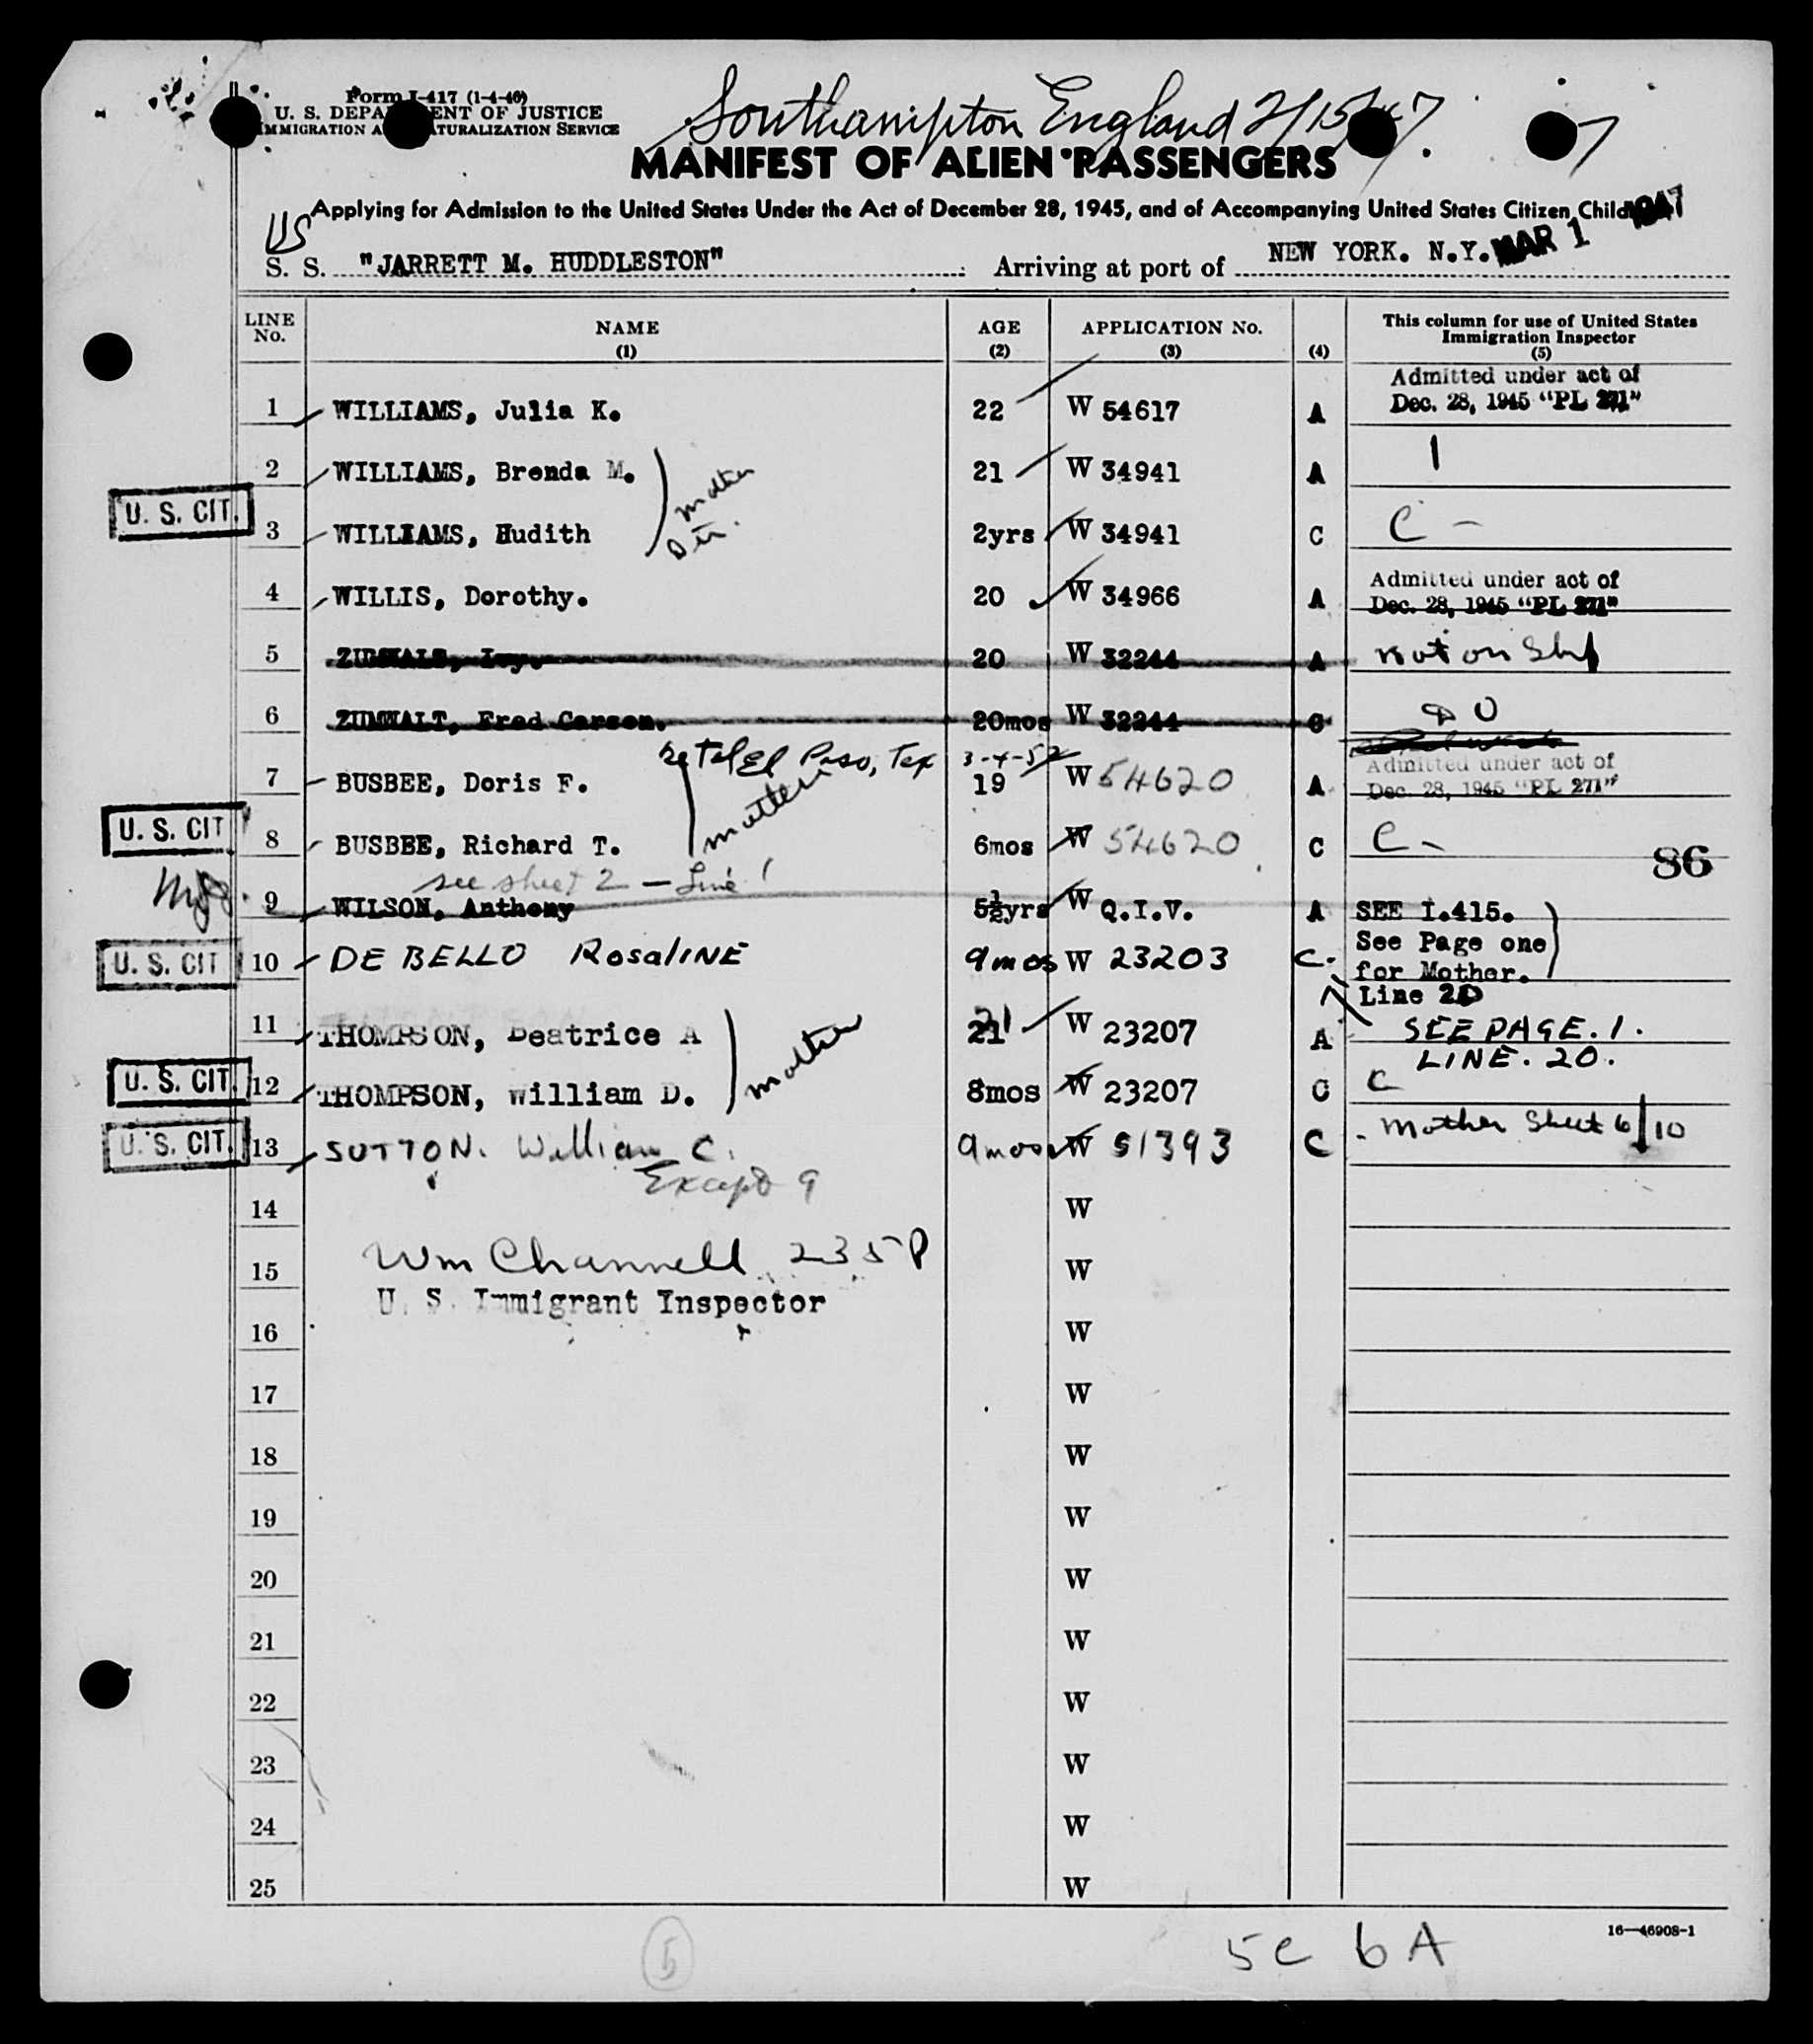 Form I-417 (1-4-46)
U. S. DEPA ENT OF JUSTICE
IMMIGRATION A TURALIZATION SERVICE
Southampton England 2/15/47
7
MANIFEST OF ALIEN PASSENGERS
Applying for Admission to the United States Under the Act of December 28, 1945, and of Accompanying United States Citizen Child
US
S. S. "JARRETT M. HUDDLESTON" Arriving at port of NEW YORK. N.Y. MAR 1 1947
LINE No. NAME (1) AGE (2) APPLICATION No. (3) (4) This column for use of United States Immigration Inspector (5)
1 WILLIAMS, Julia K. 22 W 54617 A Admitted under act of Dec. 28, 1945 "PL 271"
2 WILLIAMS, Brenda M. 21 W 34941 A 1
mother
U. S. CIT. 3 WILLIAMS, Hudith 2yrs W 34941 C C -
4 WILLIS, Dorothy. 20 W 34966 A Admitted under act of Dec. 28, 1945 "PL 271"
5 Ivy. 20 W 32244 A not on Ship
6 ZUMWALT, Fred Carson. 20mos W 32244 C DO
El Paso, Tex 3-4-52
7 BUSBEE, Doris F. 19 W 54620 A Admitted under act of Dec. 28, 1945 "PL 271"
mother
U. S. CIT 8 BUSBEE, Richard T. 6mos W 54620 C C -
86
see sheet 2 - Line 1
9 WILSON, Anthony 5½yrs W Q.I.V. A SEE I.415.
U. S. CIT 10 DE BELLO RosaLINE 9mos W 23203 C. See Page one for Mother.
Line 20
11 THOMPSON, Beatrice A 21 W 23207 A SEE PAGE. 1.
LINE. 20.
mother
U. S. CIT. 12 THOMPSON, William D. 8mos W 23207 C C
U. S. CIT. 13 SUTTON. William C. 9mos W 51393 C - Mother Sheet 6/10
Except 9
14 W
Wm Channell 235P
15 W
U. S. Immigrant Inspector
16 W
17 W
18 W
19 W
20 W
21 W
22 W
23 W
24 W
25 W
16—46908-1
5
5C 6A